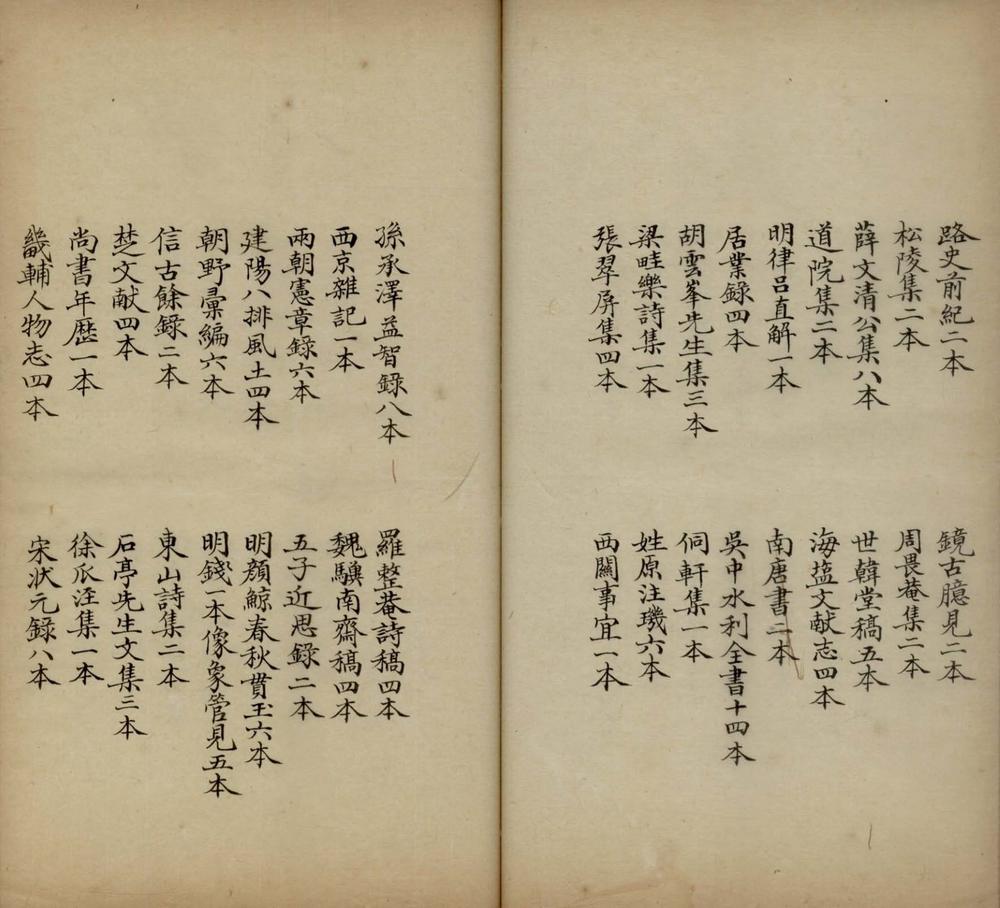 路史前紀二本
鏡古臆見二本
松陵集二本
周畏菴集二本
薛文清公集八本
世韓堂稿五本
道院集二本
海塩文献志四本
明律呂直解一本
南唐書二本
居業録四本
吳中水利全書十四本
胡雲峯先生集三本
侗軒集一本
梁畦樂詩集一本
姓原注璣六本
張翠屏集四本
西關事宜一本
孫承澤益智錄八本
羅整菴詩稿四本
西京雜記一本
魏驥南齋稿四本
兩朝憲章錄六本
五子近思錄二本
建陽八排風土四本
明顏鯨春秋貫玉六本
朝野彙編六本
明錢一本像象管見五本
信古餘錄二本
東山詩集二本
楚文献四本
石亭先生文集三本
尚書年歷一本
徐爪涇集一本
畿輔人物志四本
宋狀元錄八本